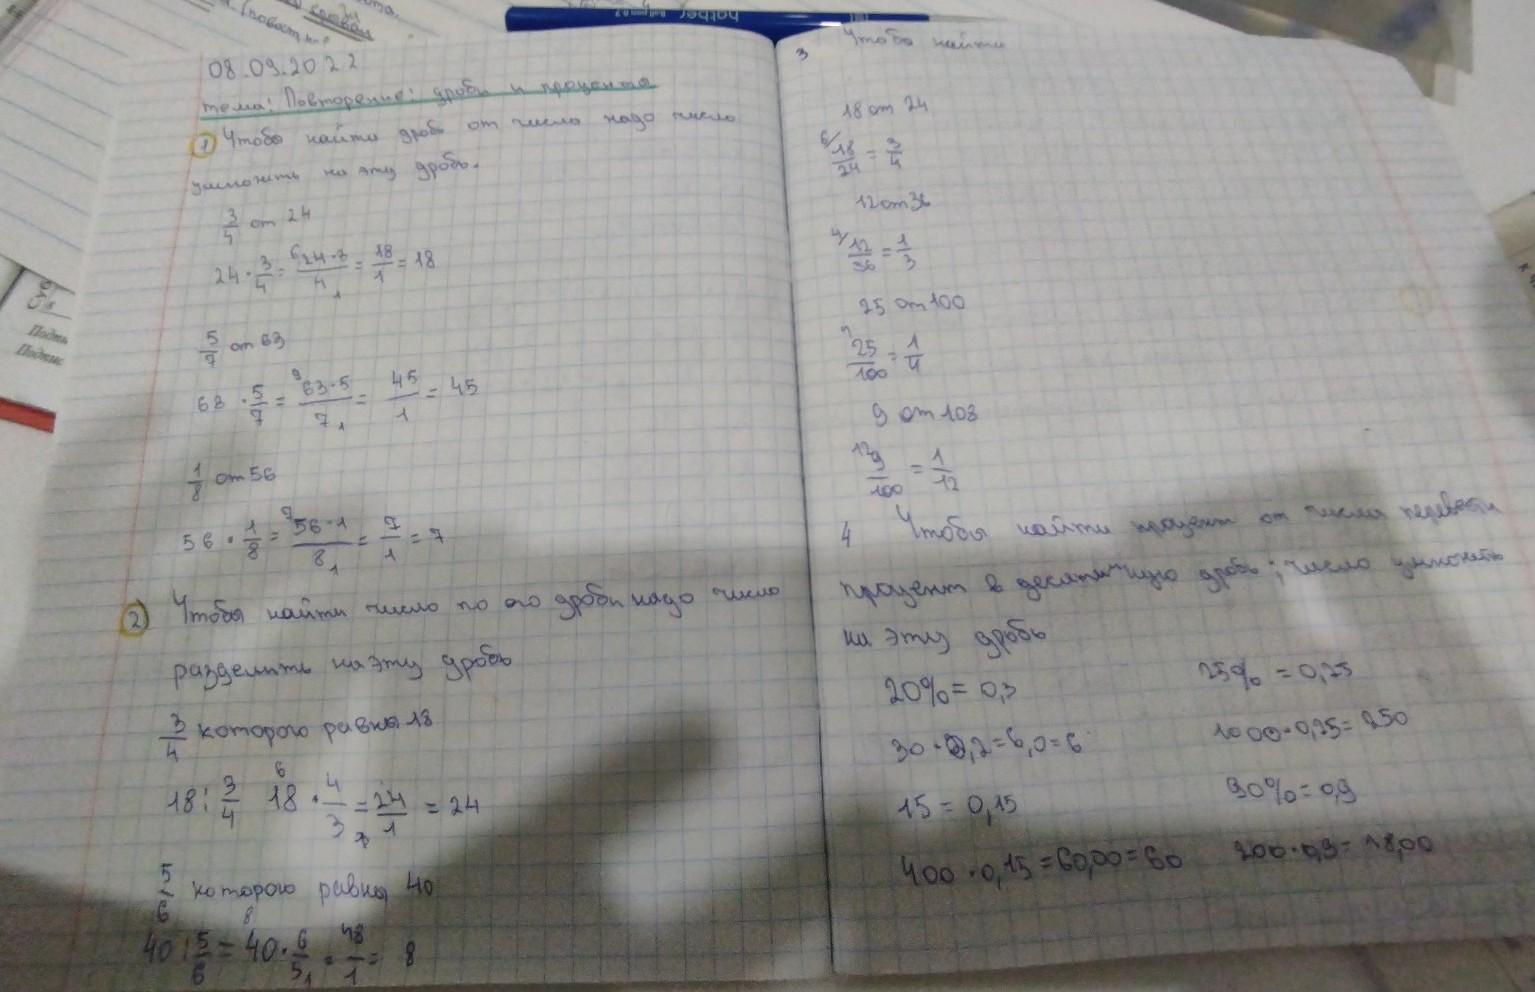 08.09.2022
тема: Повторение: дроби и проценты
1 Чтобы найти дробь от числа надо число
умножить на эту дробь.
3/4 от 24
24 · 3/4 = 24·3/4 = 18/1 = 18
5/7 от 63
63 · 5/7 = 63·5/7 = 45/1 = 45
1/8 от 56
56 · 1/8 = 56·1/8 = 7/1 = 7
2) Чтобы найти число по его дроби надо число
разделить на эту дробь
3/4 которого равны 18
18 : 3/4 18 · 4/3 = 24/1 = 24
5/6 которого равны 40
40 : 5/6 = 40 · 6/5 = 48/1 = 8
3 Чтобы найти
18 от 24
18/24 = 3/4
12 от 36
12/36 = 1/3
25 от 100
25/100 = 1/4
9 от 108
9/100 = 1/12
4 Чтобы найти процент от числа перевести
процент в десятичную дробь; число умножить
на эту дробь
20% = 0,3
30 · 0,2 = 6,0 = 6
15 = 0,15
400 · 0,15 = 60,00 = 60
25% = 0,25
1000 · 0,25 = 250
90% = 0,9
200 · 0,9 = 18,00